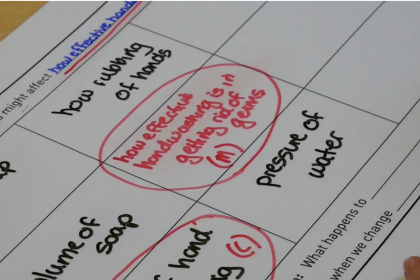 might affect how effective hand
how rubbing
of hands
how effective
handwashing is in
getting rid of
germs
(m)
pressure of
water
lume of
soap
hand
(c)
What happens to
when we change